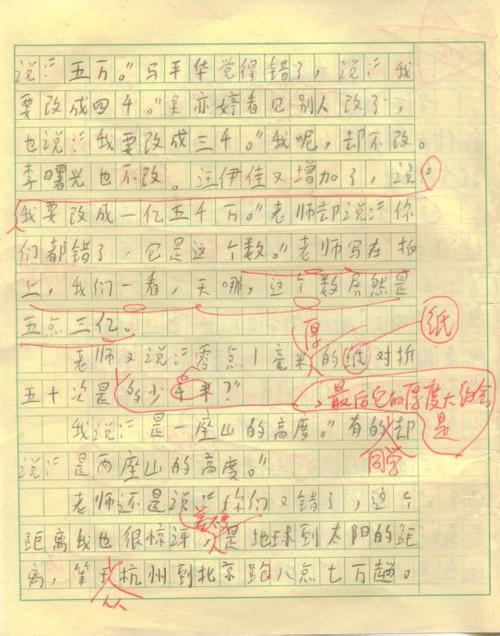 说：“五万。”马平华觉得错了，说：“我
要改成四千。”吴亦婷看见别人改了，
也说：“我要改成三千。”我呢，却不改。
李曙光也不改。汪伊佳又增加了，说：
我要改成一亿五千万。”老师却说：“你
们都错了，它是这个数。”老师写在板
上，我们一看，天哪，这个数居然是
五点三亿。
厚
纸
老师又说：“零点1毫米的纸对折
五十次是多少千米？”
，最后它的厚度大约会
是
我说：“是一座山的高度。”有的却
同学
说：“是两座山的高度。”
老师还是说：“你们又错了，这个
距离我也很惊讶，是地球到太阳的距
离，第我杭州到北京跑八点七万趟。
从